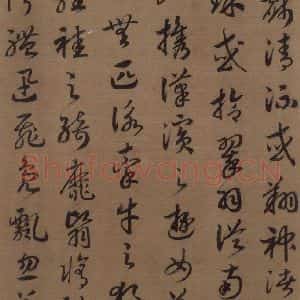 戲清流或翔神渚
珠或拾翠羽從南
攜漢濱之遊女
無匹詠牽牛之獨
袿之綺靡翳脩
體迅飛鳧飄忽若
Shufawang.CN